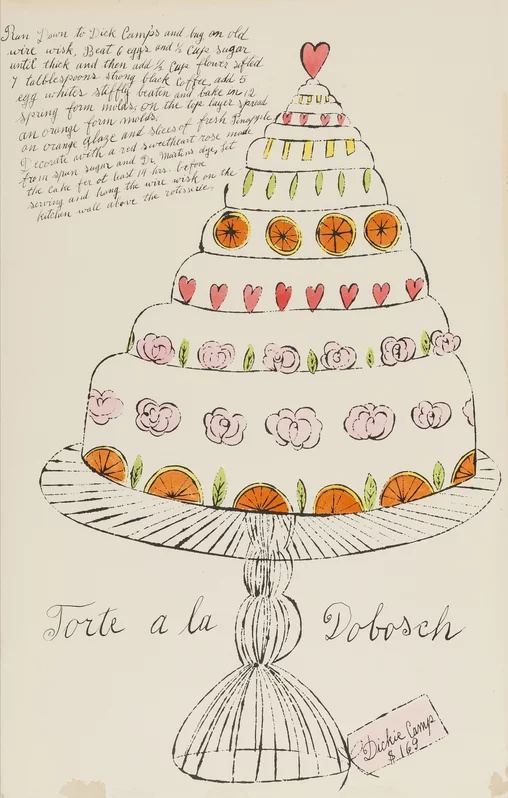 Run Down to Dick Camps and buy an old
wire wisk, Beat 6 eggs and ½ Cup sugar
until thick and then add ½ Cup flower sifted
7 tablbespoons strong black coffee, add 5
egg whites stiffly beaten and bake in 12
spring form molds, on the top layer spread
an orange form molds.
an orange glaze and slices of fresh Pineapple
Decorate with a red sweetheart rose made
from spun sugar and Dr. Martins dye, Let
the cake fer at least 14 hrs. before
serving and hang the wire wisk on the
kitchen wall above the rotisserie.
Torte a la Dobosch
Dickie Camp
$ 169